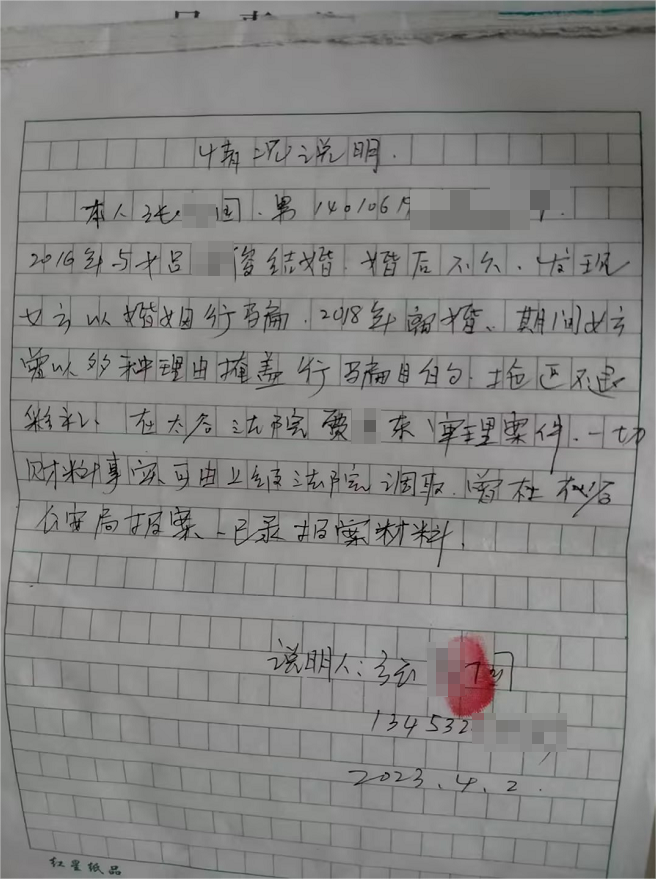 情况说明.
本人张 国.男 140106
2016年与女吕 俊结婚.婚后不久.发现
女方以婚姻行骗.2018年离婚、期间女方
曾以多种理由掩盖行骗目的.拖延不退
彩礼、在太谷法院费 东审理案件.一切
材料事实可由上级法院调取.曾在太谷
公安局报案、已录报案材料.
说明人:张 国
134532
2023.4.2.
红星纸品